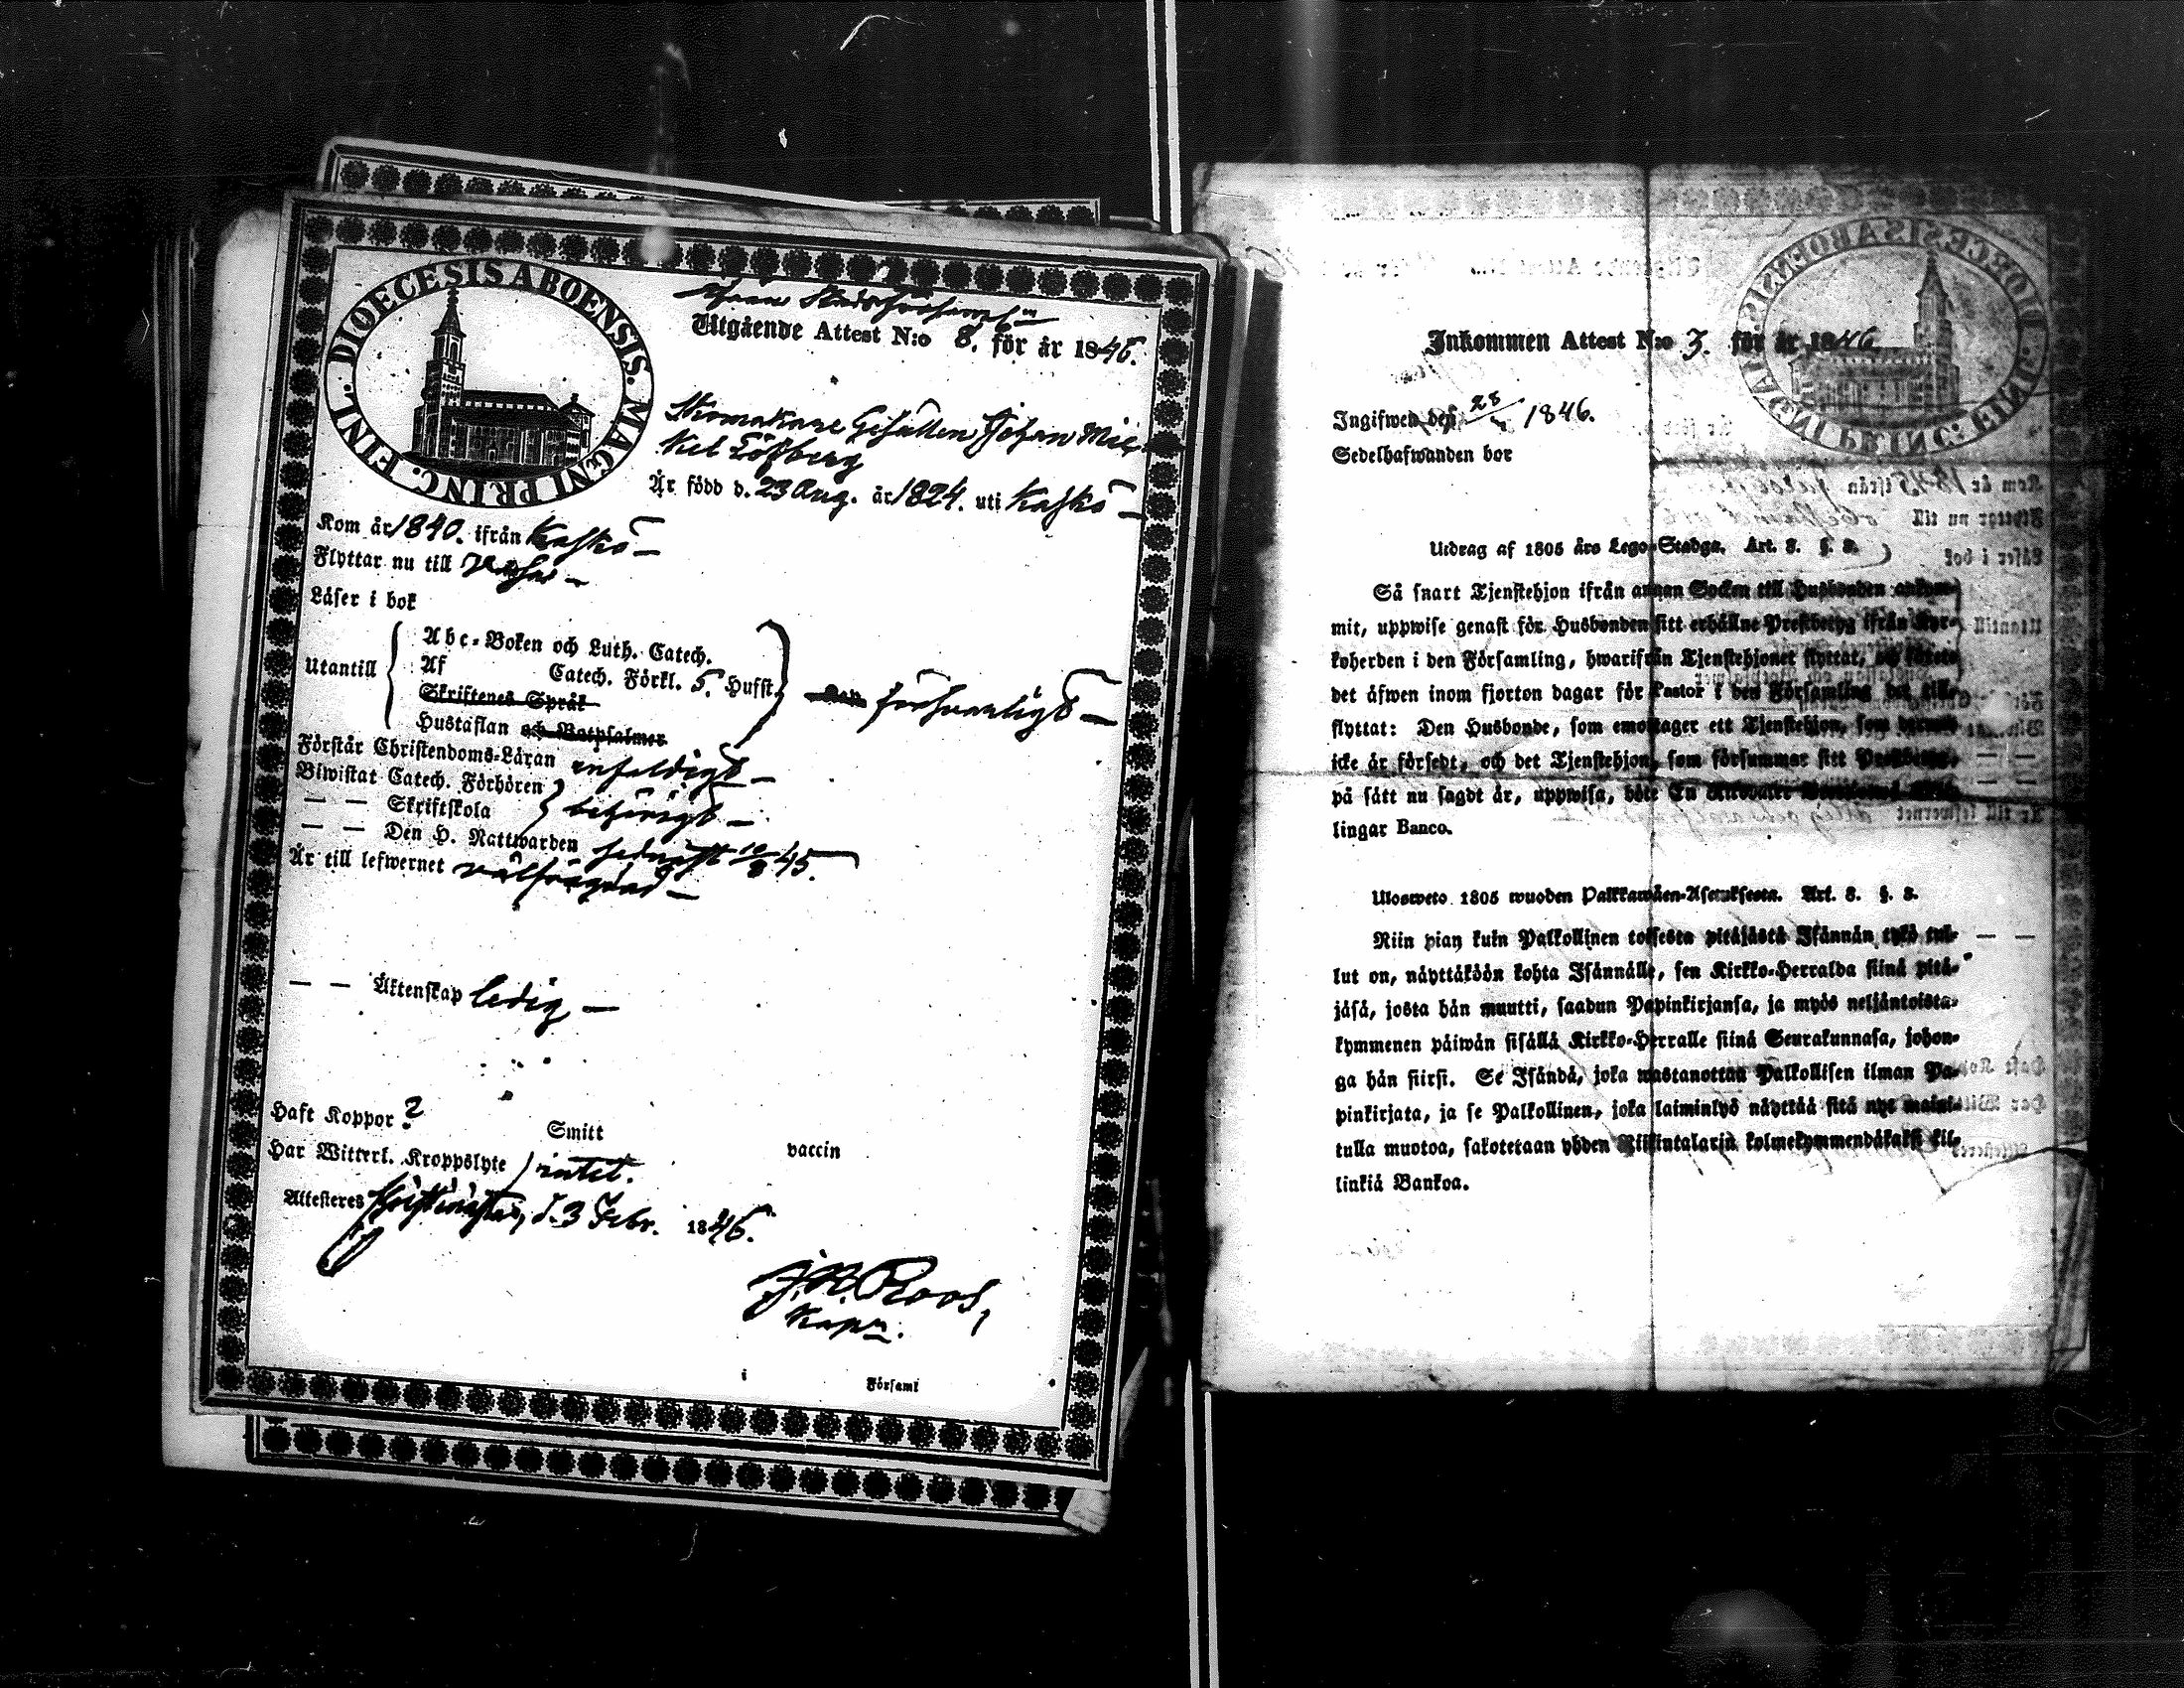 DIOECESIS ABOENSIS. MAGNI PRINC. FINL.
Utgående Attest N:o 8. för år 1846.
Skomakare Gesällen Johan Mic-
kel Löfberg
Är född d. 23 Aug. år 1824. uti Kaskö
Kom år 1840. ifrån Kaskö
Flyttar nu till Wasa
Läser i bok
Utantill
Abc-Boken och Luth. Catech.
Af Catech. Förkl. 5. Hufst.
Skriftenes Språk
Hustaflan och Botpsalmer
försvarligt
Förstår Christendoms-Läran enfaldigt
Biwistat Catech. Förhören
— — Skriftskola
behörigt
— — Den H. Nattwarden sednast 10/8 45.
Är till lefwernet välfrägdad
— — Äktenskap ledig
Haft Koppor ? Smitt vaccin
Har Witterl. Kroppslyte intet.
Attesteres Christinestad, d. 3 Febr. 1846.
Roos,
Kapn.
i Församl
Inkommen Attest N:o 3. för år 1846
Ingifwen den 28/4 1846.
Sedelhafwanden bor
Utdrag af 1805 års Lego-Stadga. Art. 8. §. 8.
Så snart Tjenstehjon ifrån annan Socken till Husbonden ankom-
mit, uppwise genast för Husbonden sitt erhållne Prestbetyg ifrån Kyr-
koherden i den Församling, hwarifrån Tjenstehjonet flyttat, och
det äfwen inom fjorton dagar för Pastor i den Församling det till-
flyttat: Den Husbonde, som emottager ett Tjenstehjon, som dermed
icke är försedt, och det Tjenstehjon, som försummar sitt Prestbetyg,
på sätt nu sagdt är, uppwisa, böte En Riksdaler
lingar Banco.
Ulosweto 1805 wuoden Palkkawäen-Asetuksesta. Art. 8. §. 8.
Niin pian kuin Palkollinen toisesta pitäjästä Isännän tykö tul-
lut on, näyttäköön kohta Isännälle, sen Kirkko-Herralda siinä pitä-
jäsä, josta hän muutti, saadun Papinkirjansa, ja myös neljäntoista-
kymmenen päiwän sisällä Kirkko-Herralle siinä Seurakunnasa, johon-
ga hän siirsi. Se Isändä, joka wastanottaa Palkollisen ilman Pa-
pinkirjata, ja se Palkollinen, joka laiminlyö näyttää sitä nyt maini-
tulla muotoa, sakotetaan yhden Riikintalarja kolmekymmendäkaksi kil-
linkiä Bankoa.